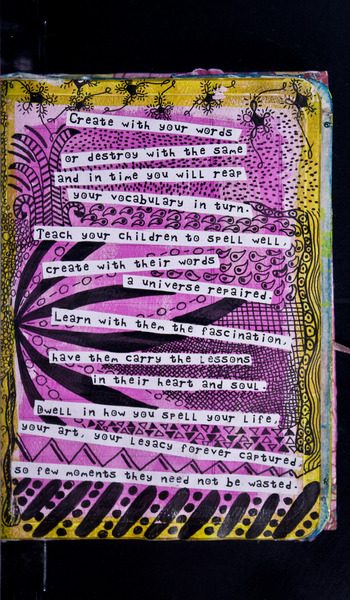 Create with your words
or destroy with the same
and in time you will reap
your vocabulary in turn.
Teach your children to spell well,
create with their words
a universe repaired.
Learn with them the fascination,
have them carry the lessons
in their heart and soul.
Dwell in how you spell your life,
your art, your legacy forever captured,
so few moments they need not be wasted.